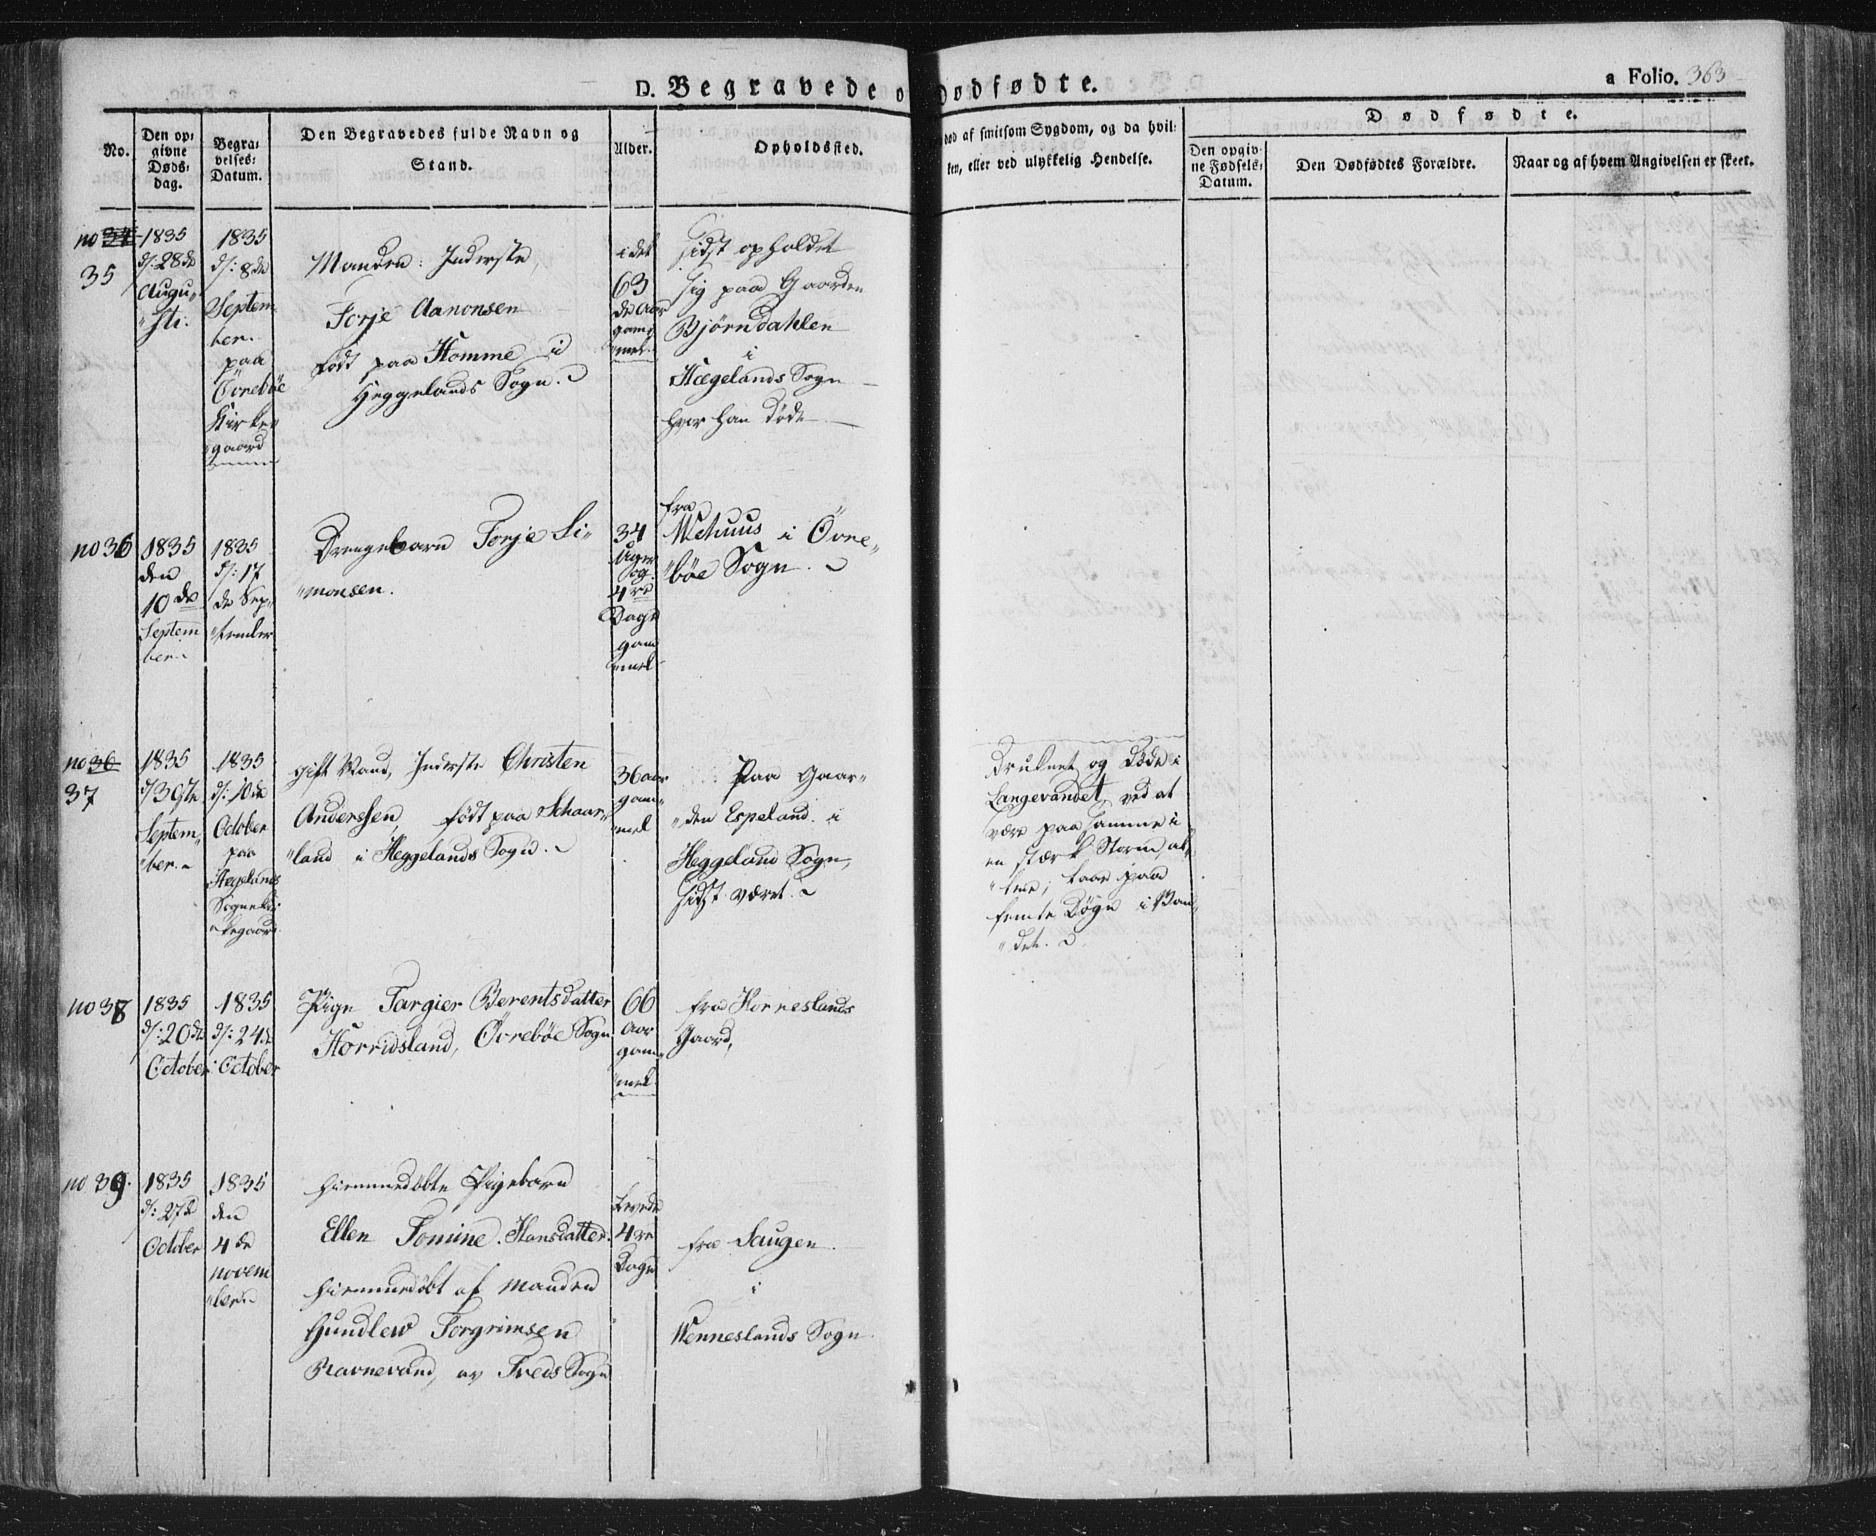 D. Begravede o
dødfødte.
a Folio. 363
No.
Den op-
givne
Døds-
dag.
Begra-
velses-
Datum.
Den Begravedes fulde Navn og
Stand.
Alder.
Opholdssted.
død af smitsom Sygdom, og da hvil-
ken, eller ved ulykkelig Hendelse.
Dødfødte.
Den opgiv-
ne Fødsels-
Datum.
Den Dødfødtes Forældre.
Naar og af hvem Angivelsen er skeet.
no 34
35
1835
d: 28de
Augu-
"sti.
1835
d: 8de
Septem-
ber.
paa
Övrebøe
Kirke-
"gaard
Manden: Inderste,
Torje Aanonsen
født paa Homme i
Heggelands Sogn.
i det
63
de Aar
gam-
"mel.
sidst opholdet
sig paa Gaarden
Bjørndahlen
i
Hægelands Sogn
hvor han døde
no 36
1835
den
10de
Septem
ber.
1835
d: 17
de Sep-
"tember
Drengebarn Torje Si-
"monsen.
34
Uger
og
4re
Dage
gam
"mel
fra
Wehuus i Övre-
"bøe Sogn.
no 36
37
1835
d 30te
Septem-
"ber.
1835
d: 10de
October
paa
Hægelands
Sogneki
rkegaard
gift Mand, Inderste Christen
Anderssen, født paa Schaar-
"land i Heggelands Sogn.
36 aar
gam-
"mel
Paa Gaar-
"den Espeland i
Heggeland Sogn,
sidst været.
Druknet og døde i
Langevandet, ved at
være paa samme i
en stærk Storm, al-
"lene; laae paa
femte Døgn i Van-
"det.
no 38
1835
d: 20de
October
1835
d: 24de
October
Pige Targier Berentsdatter
Horridsland, Övrebøe Sogn
66
aar
gam-
"mel
fra Horneslands
Gaard,
no 39.
1835
d: 27de
October
1835
den
4de
novem
"ber
hiemmedøbte Pigebarn
Ellen Tomine Hansdatter.
hiemmedøbt af manden
Gundlew Torgrimsen
Ravnevand, av Treds Sogn
Levede
4re
Dage
fra Saugen
i
Wenneslands Sogn.